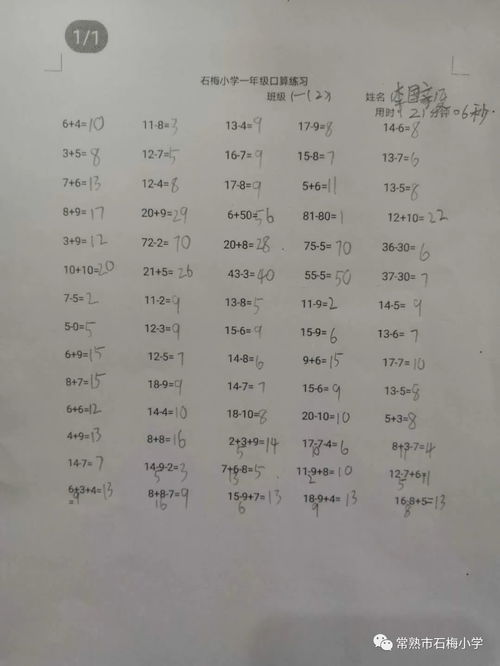 1/1
石梅小学一年级口算练习
班级 一(2)
姓名 李国
用时 21分钟06秒.
6+4=10 11-8=3 13-4=9 17-9=8 14-6=8
3+5=8 12-7=5 16-7=9 15-8=7 13-7=6
7+6=13 12-4=8 17-8=9 5+6=11 13-5=8
8+9=17 20+9=29 6+50=56 81-80=1 12+10=22
3+9=12 72-2=70 20+8=28 75-5=70 36-30=6
10+10=20 21+5=26 43-3=40 55-5=50 37-30=7
7-5=2 11-2=9 13-8=5 11-9=2 14-5=9
5-0=5 12-3=9 15-6=9 15-9=6 13-6=7
6+9=15 12-5=7 14-8=6 9+6=15 17-7=10
8+7=15 18-9=9 14-7=7 15-6=9 13-5=8
6+6=12 14-4=10 18-10=8 20-10=10 5+3=8
4+9=13 8+8=16 2+3+9=14 17-7-4=6 8+3-7=4
5 10 11
14-7=7 14-9-2=3 7+6-8=5 11-9+8=10 12-7+6=11
5 13 2 5
6+3+4=13 8+8-7=9 15-9+7=13 18-9+4=13 16-8+5=13
9 16 6 9 8
常熟市石梅小学